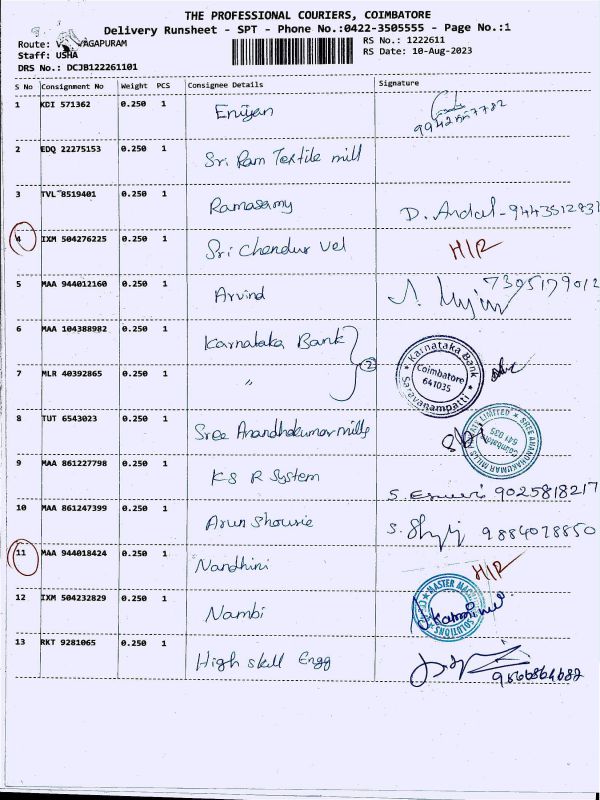 THE PROFESSIONAL COURIERS, COIMBATORE
Delivery Runsheet - SPT - Phone No.:0422-3505555 - Page No.:1
Route: VAGAPURAM
RS No.: 1222611
Staff: USHA
RS Date: 10-Aug-2023
DRS No.: DCJB122261101
S No Consignment No Weight PCS Consignee Details Signature
1 KDI 571362 0.250 1 Eniyan
2 EDQ 22275153 0.250 1 Sri Ram Textile mill
3 TVL 8519401 0.250 1 Ramasamy D. Andal-9443512731
4 IXM 504276225 0.250 1 Sri Chendur Vel H/R
5 MAA 944012160 0.250 1 Arvind 7305179012
6 MAA 104388982 0.250 1 Karnataka Bank
7 MLR 40392865 0.250 1 〃 2
Karnataka Bank
Coimbatore
641035
Saravanampatti
8 TUT 6543023 0.250 1 Sree Anandhakumar mills
SREE ANANDHAKUMAR MILLS LIMITED
Coimbatore
641 035
9 MAA 861227798 0.250 1 KSR System S. Eswari 9025818217
10 MAA 861247399 0.250 1 Arun Shourie 9884028850
11 MAA 944018424 0.250 1 Nandhini H/R
12 IXM 504232829 0.250 1 Nambi
MASTER SOLUTIONS
13 RKT 9281065 0.250 1 High skill Engg